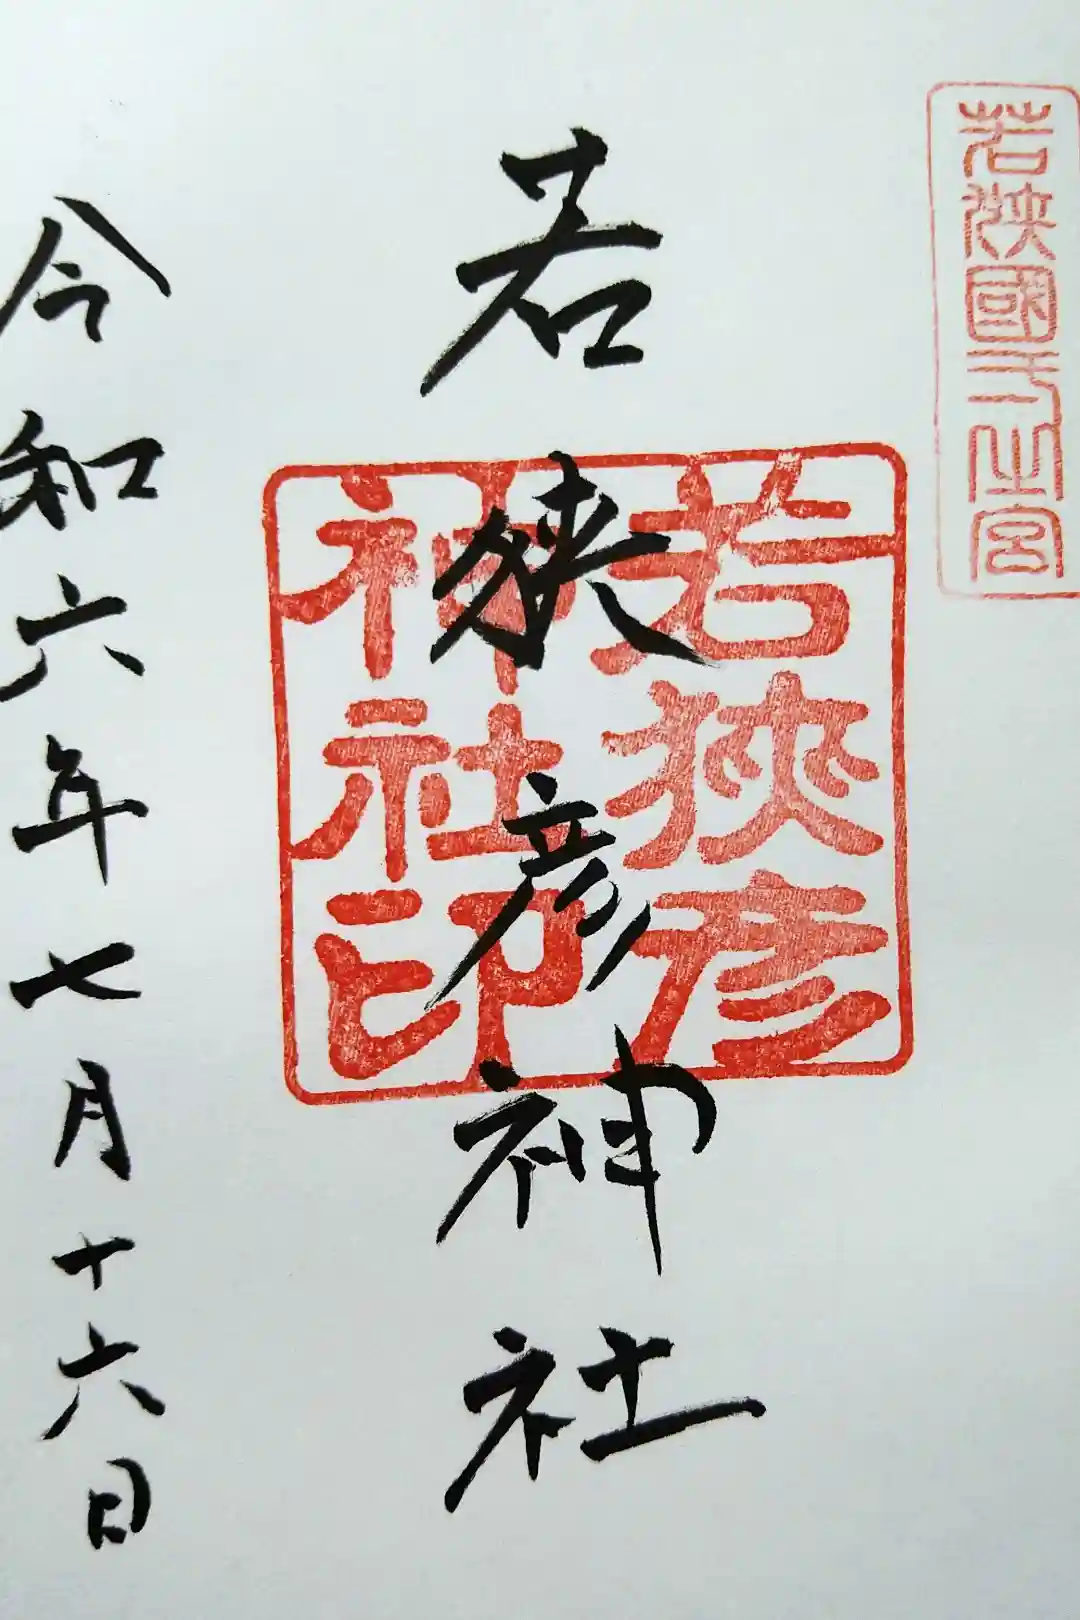 若狹國一之宮
若狹彦神社印
若狹彦神社
令和六年七月十六日